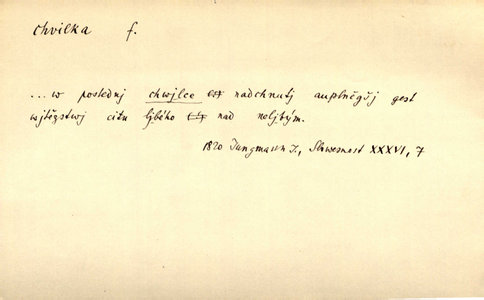 chvilka f.
... w poslednj chwjlce nadchnutj auplněgšj gest
wjtězstwj citu ljbého nad neljbým.
1820 Jungmann J., Slowesnost XXXVI, 7